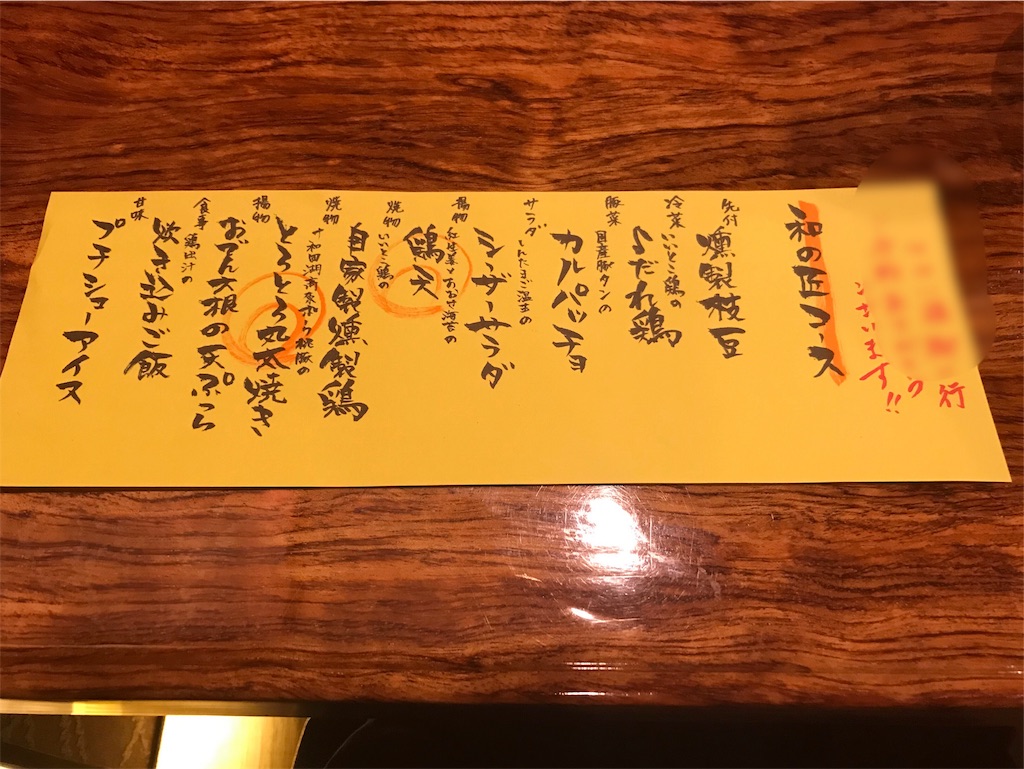 行
り
ざいます!!
和の匠コース
先付
燻製枝豆
冷菜 いいとこ鶏の
よだれ鶏
豚菜 国産豚タンの
カルパッチョ
サラダ しんたまご温玉の
シーザーサラダ
揚物 紅生姜とあおさ海苔の
鶏天
焼物 いいとこ鶏の
自家製燻製鶏
焼物 十和田湖高原 桃豚の
とろとろ丸太焼き
揚物
おでん大根の天ぷら
食事 鶏出汁の
炊き込みご飯
甘味
プチシューアイス